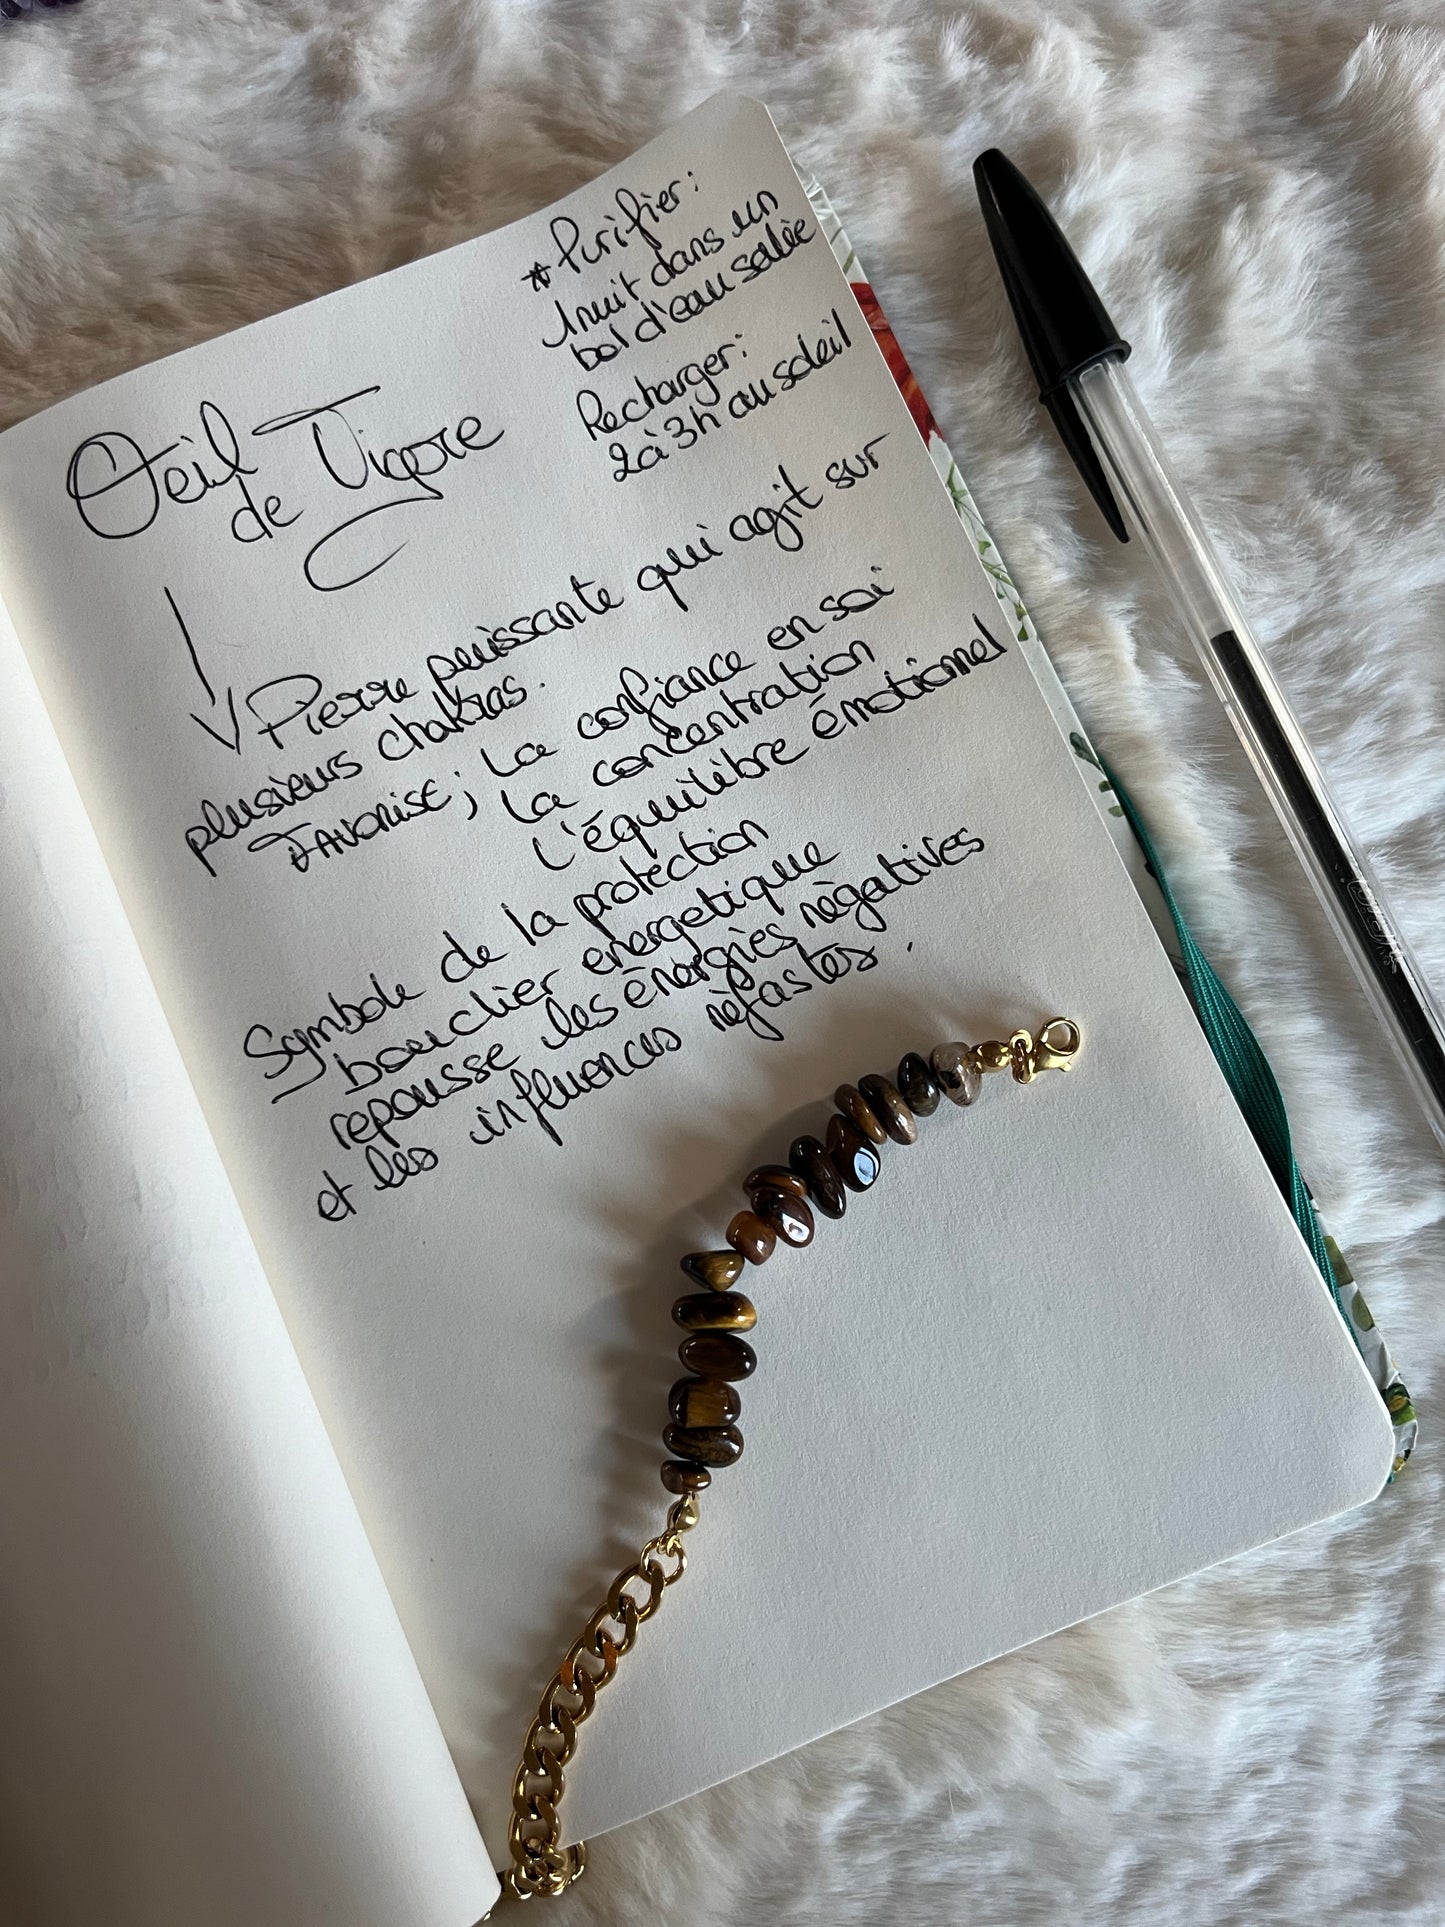 Oeil
de Tigre
* Purifier:
1 nuit dans un
bol d'eau salée
Recharger:
2 à 3h au soleil
Pierre puissante qui agit sur
plusieurs chakras.
Favorise; La confiance en soi
La concentration
L'équilibre émotionnel
Symbole de la protection
bouclier energetique
repousse les énergies négatives
et les influences néfastes.